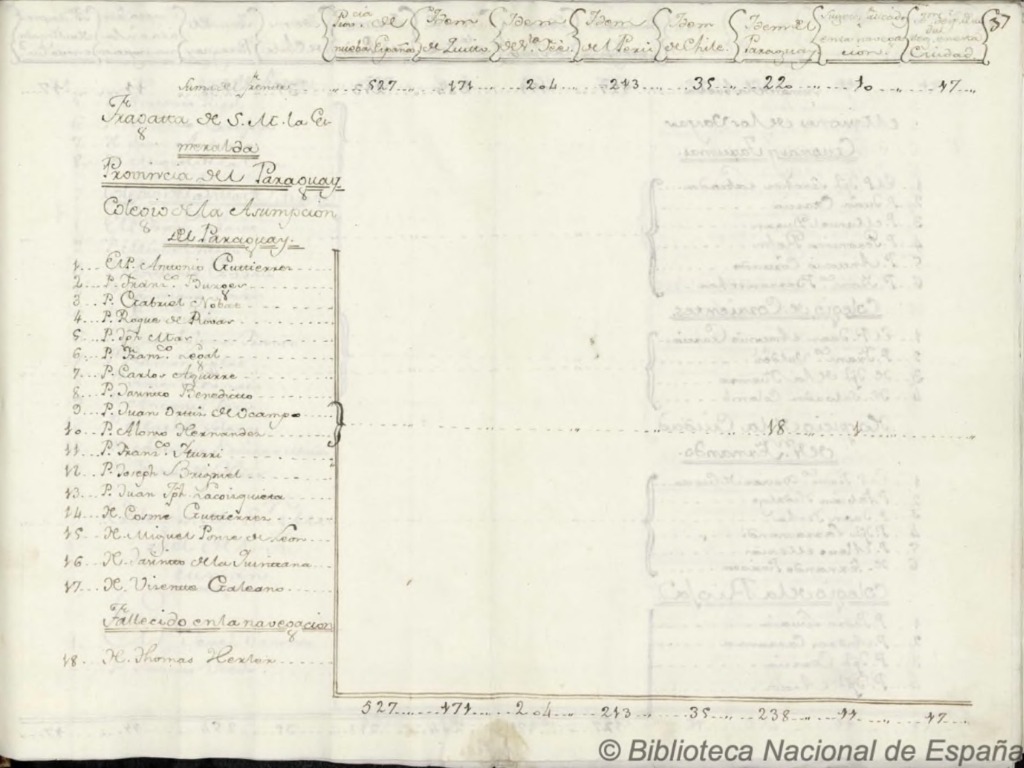 Prov.cia de nueva España
Idem de Quito
Idem de S.ta Fee
Idem del Perù
Idem de Chile
Idem del Paraguay
Ciudad
37
Suma del frente 527 171 204 213 35 220 10 17
Fragatta de S. M. la Es
meralda
Provincia del Paraguay
Colegio de la Asumpcion
del Paraguay
1... El P. Antonio Guttierrez
2... P. Fran.co Burges
3... P. Gabriel Nobat
4... P. Roque de Rivas
5... P. Jph Mar
6... P. Fran.co Legal
7... P. Carlos Aguirre
8... P. Jacinto Benedicto
9... P. Juan Ortiz de Ocampo
10... P. Alonso Hernandez 18 1
11... P. Fran.co Iturri
12... P. Joseph Brigniel
13... P. Juan Jph
14... H. Cosme Guttierrez
15... H. Miguel Ponze de Leon
16... H. Jacinto de la Quintana
17... H. Vizente Galeano
Fallecido en la navegacion
18... H. Thomas Herler
527 171 204 213 35 238 11 17
© Biblioteca Nacional de España